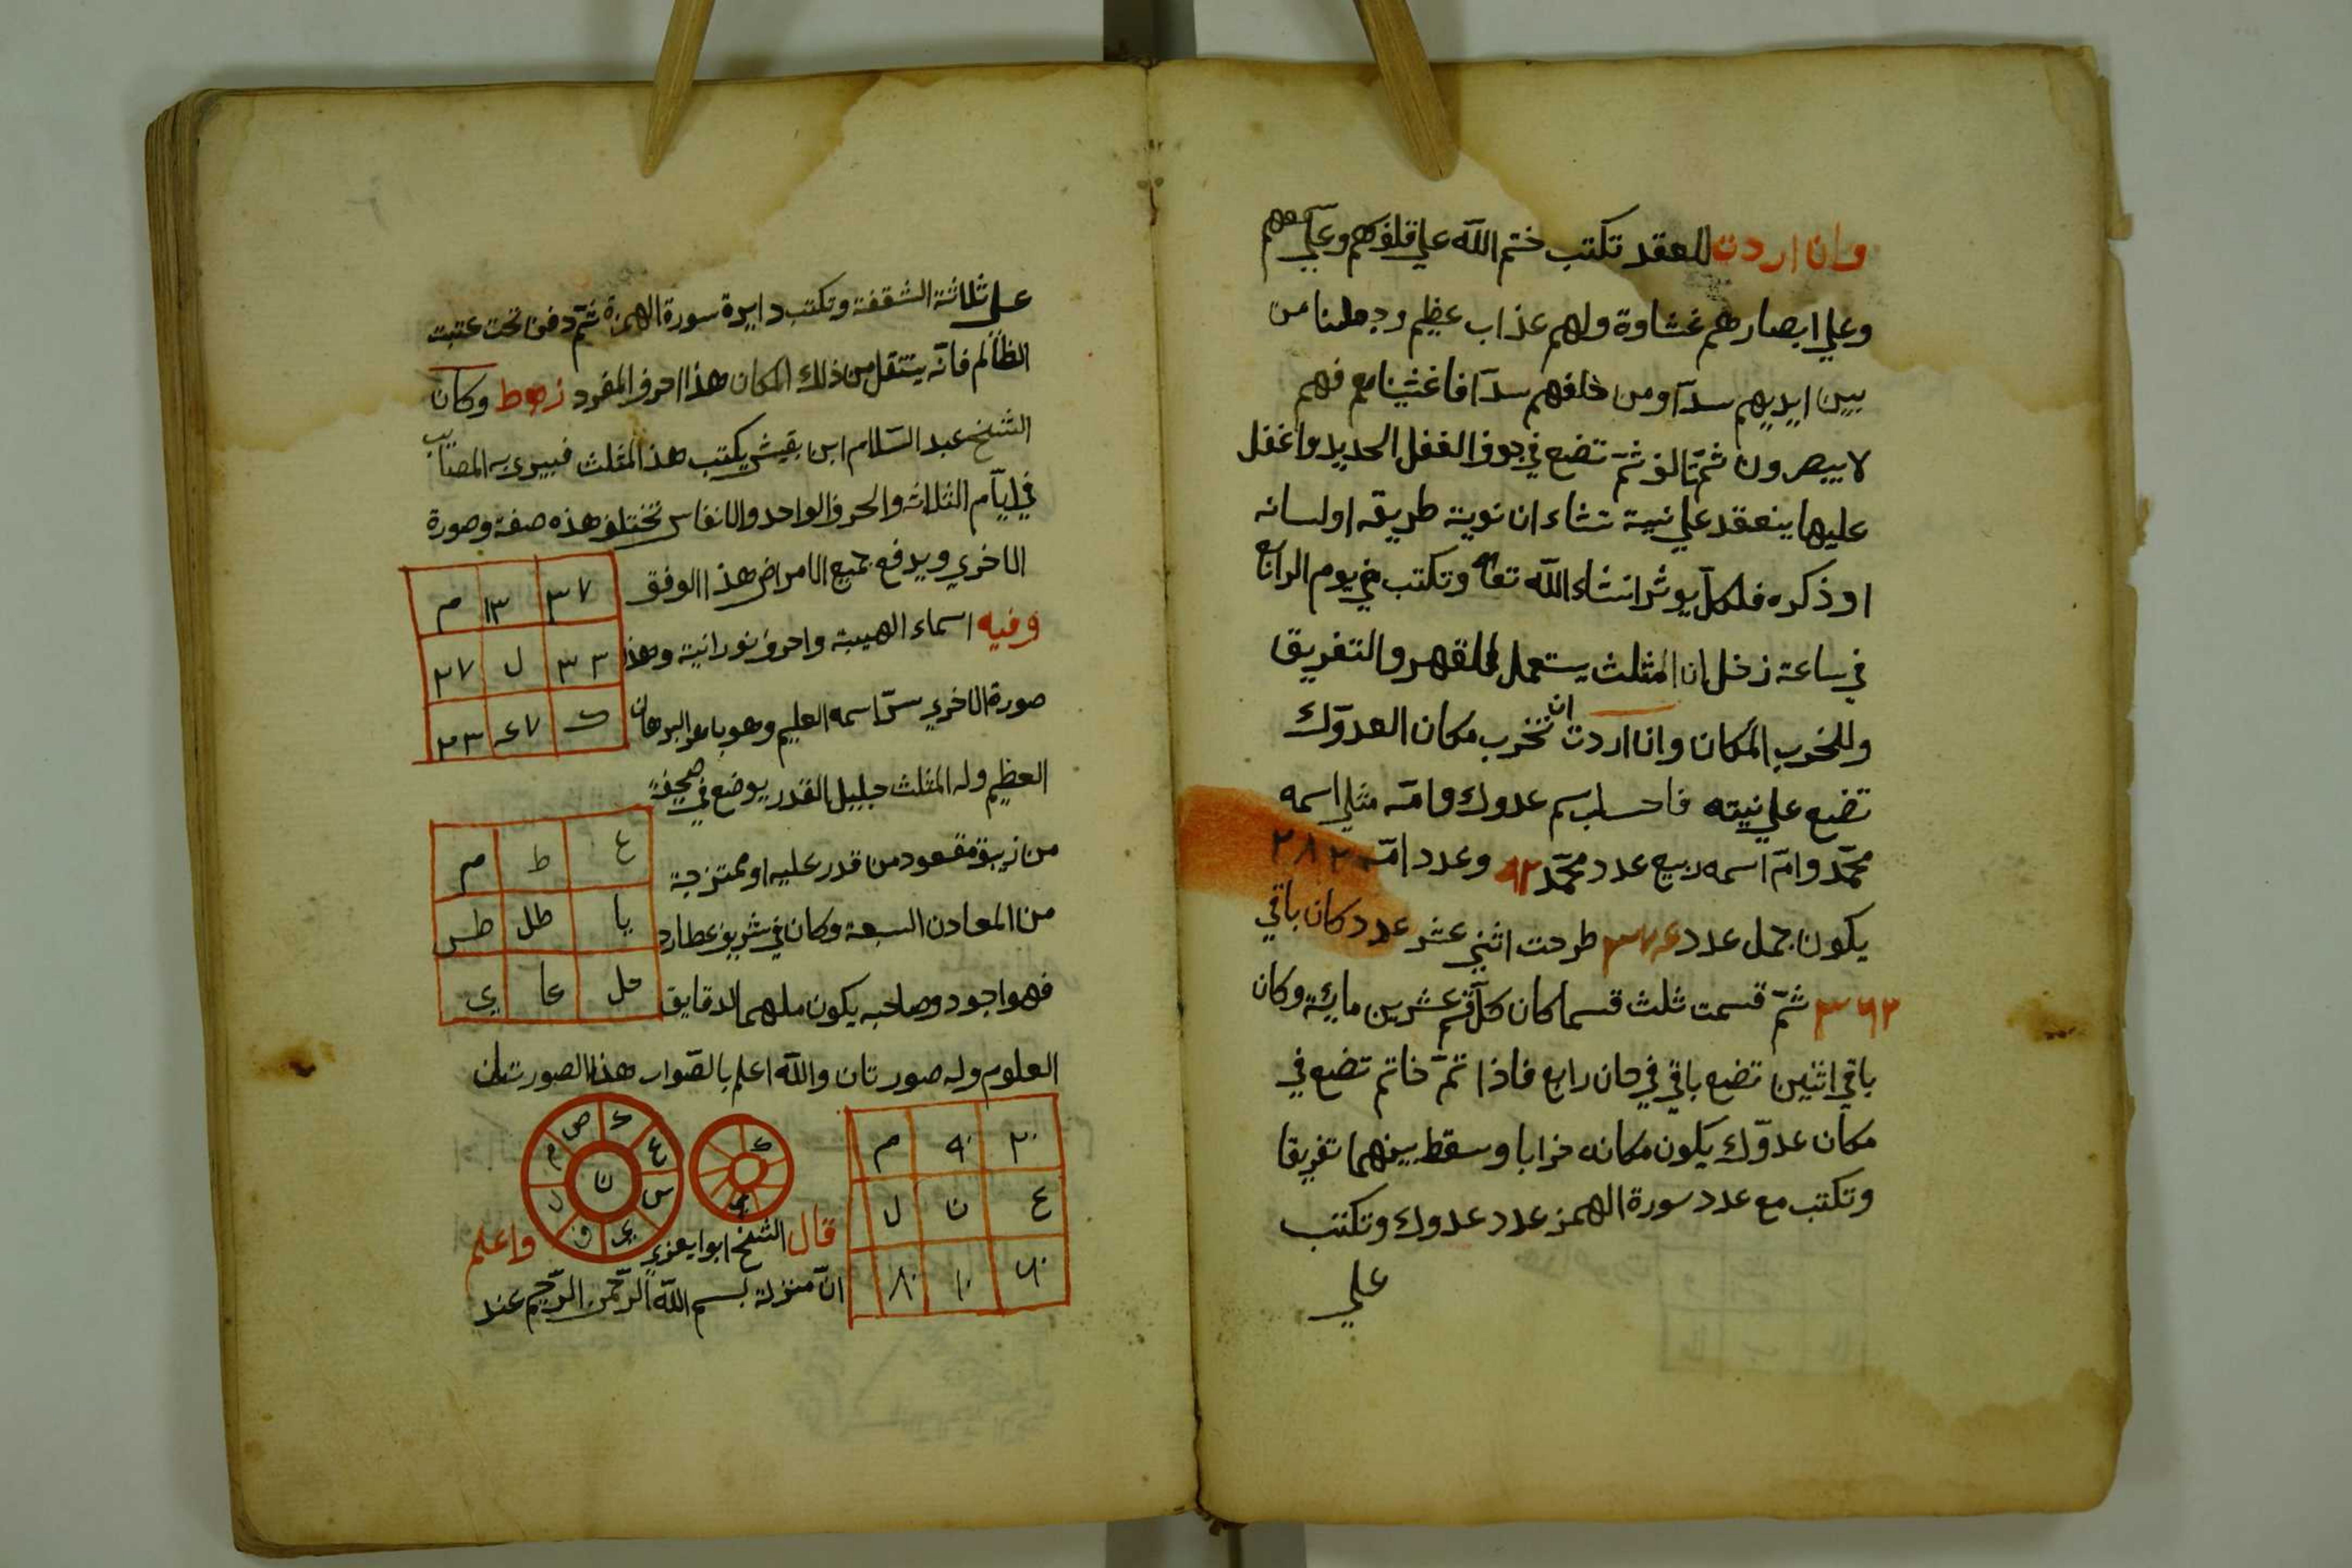 وان اردت للعقد تكتب ختم الله علي قلوبهم وعلي سمعهم
وعلي ابصارهم غشاوة ولهم عذاب عظيم وجعلنا من
بين ايديهم سدّا ومن خلفهم سدّا فاغشيناهم فهم
لا يبصرون ثمّ تالف ثمّ تضع في جوف القفل الحديد واغفل
عليها ينعقد علي نيية تشاء ان نوية طريقه او لسانه
او ذكره فلكلّ يوثر انشاء الله تعا وتكتب في يوم الرابع
في ساعة زخل ان المثلث يستعمل للقهر والتفريق
وللخرب المكان وان اردت ان تخرب مكان العدوّك
تضع علي نيته فاحسب اسم عدوك وامّه مثلي اسمه
محمّد وامّ اسمه ربيع عدد محمّد ٩٢ وعدد امّه ٢٨٢
يكون جمل عدد ٣٧٤ طرحت اثني عشر عدد كان باقي
٣٦٢ ثمّ قسمت ثلث قسما كان كلّ قسم عشرين ماية وكان
باقي اثنين تضع باقي في خان رابع فاذا تمّ خاتم تضع في
مكان عدوّك يكون مكانه خرابا وسقط بينهما تفريقا
وتكتب مع عدد سورة الهمز عدد عدوك وتكتب
علي
علي ثلاثة الشقفة وتكتب دايرة سورة الهمزة ثمّ دفن تحت عتبت
الظالم فانّه ينتقل من ذلك المكان هذا احرف المفرد وكان
الشيخ عبد السّلام ابن بقيش يكتب هذ المثلث فيبري به المصاب
في ايّام الثلاثه والحرف الواحد والانفاس تختلف هذه صفة وصورة
الاخري ويدفع جميع الامراض هذا الوفق
٣٧ ١٣ م
وفيه اسماء الهيبة واحرف نورانية وهذ
٣٣ ل ٢٧
صورة الاخري سرّ اسمه العليم وهو باهر البرهان
ك ٤٧ ٢٣
العظيم وله المثلث جليل القدر يوضع في صحيفة
من زيبق مقعود من قدر عليه او ممتزجة
ع ط م
من المعادن السبعة وكان في شريف عطارد
يا طل طس
فهو اجود وصاحبه يكون ملهم الدقايق
عا ي
العلوم وله صورتان والله اعلم بالصّواب هذا الصورتان
٢٠ ٩٠ م
ع ن ل
٦٠ ١٠ ٨٠
ك
ي
ك ع س ي ف ل م ص
ن
قال الشيخ ابوا يعزي واعلم
انّ منزلة بسم الله الرّحمن الرّحيم عند